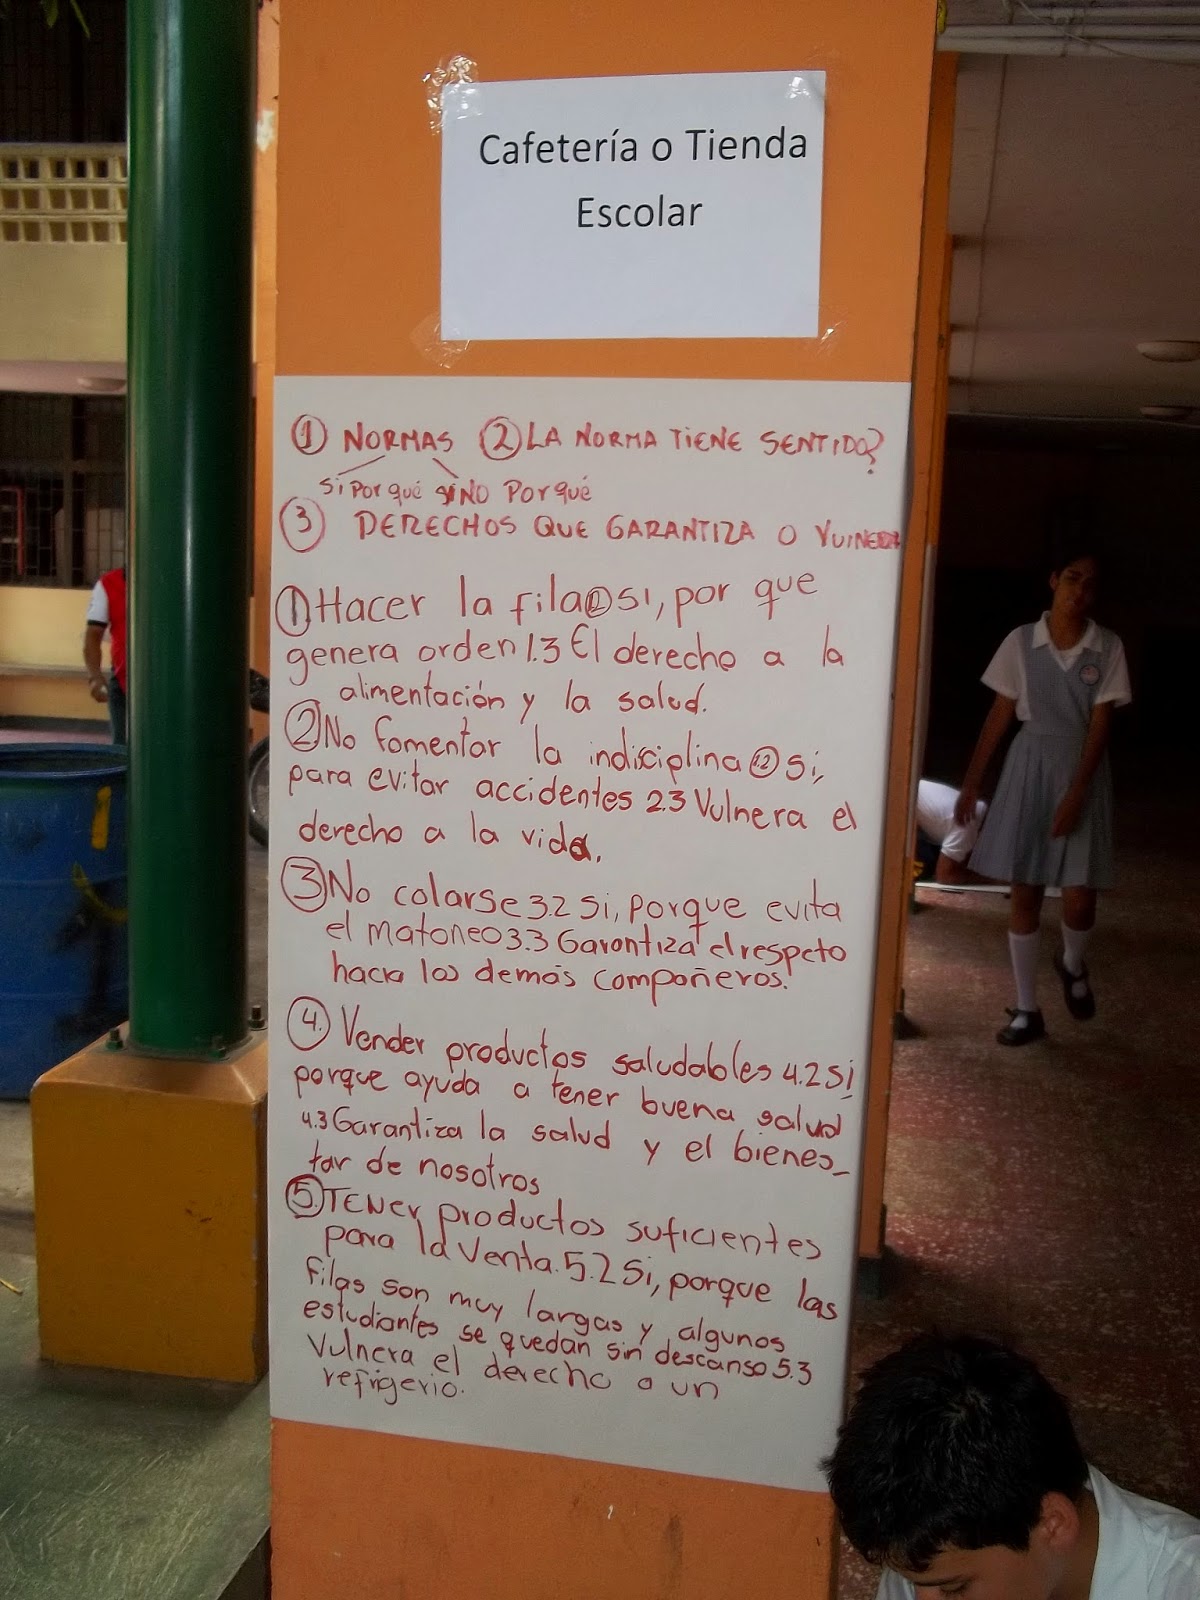 Cafetería o Tienda
Escolar
① NORMAS ② LA NORMA TIENE SENTIDO?
Si Por qué NO Porqué
③ DERECHOS QUE GARANTIZA O
① Hacer la fila 1.2 Si, por que
genera orden 1.3 El derecho a la
alimentación y la salud.
② No fomentar la indisciplina 2.2 Si,
para evitar accidentes 2.3 Vulnera el
derecho a la vida.
③ No colarse 3.2 Si, porque evita
el matoneo 3.3 Garantiza el respeto
hacia los demás compañeros.
④. Vender productos saludables 4.2 Si
porque ayuda a tener buena salud
4.3 Garantiza la salud y el bienes_
tar de nosotros
⑤. TENER productos suficientes
para la venta. 5.2 Si, porque las
filas son muy largas y algunos
estudiantes se quedan sin descanso 5.3
Vulnera el derecho a un
refrigerio.